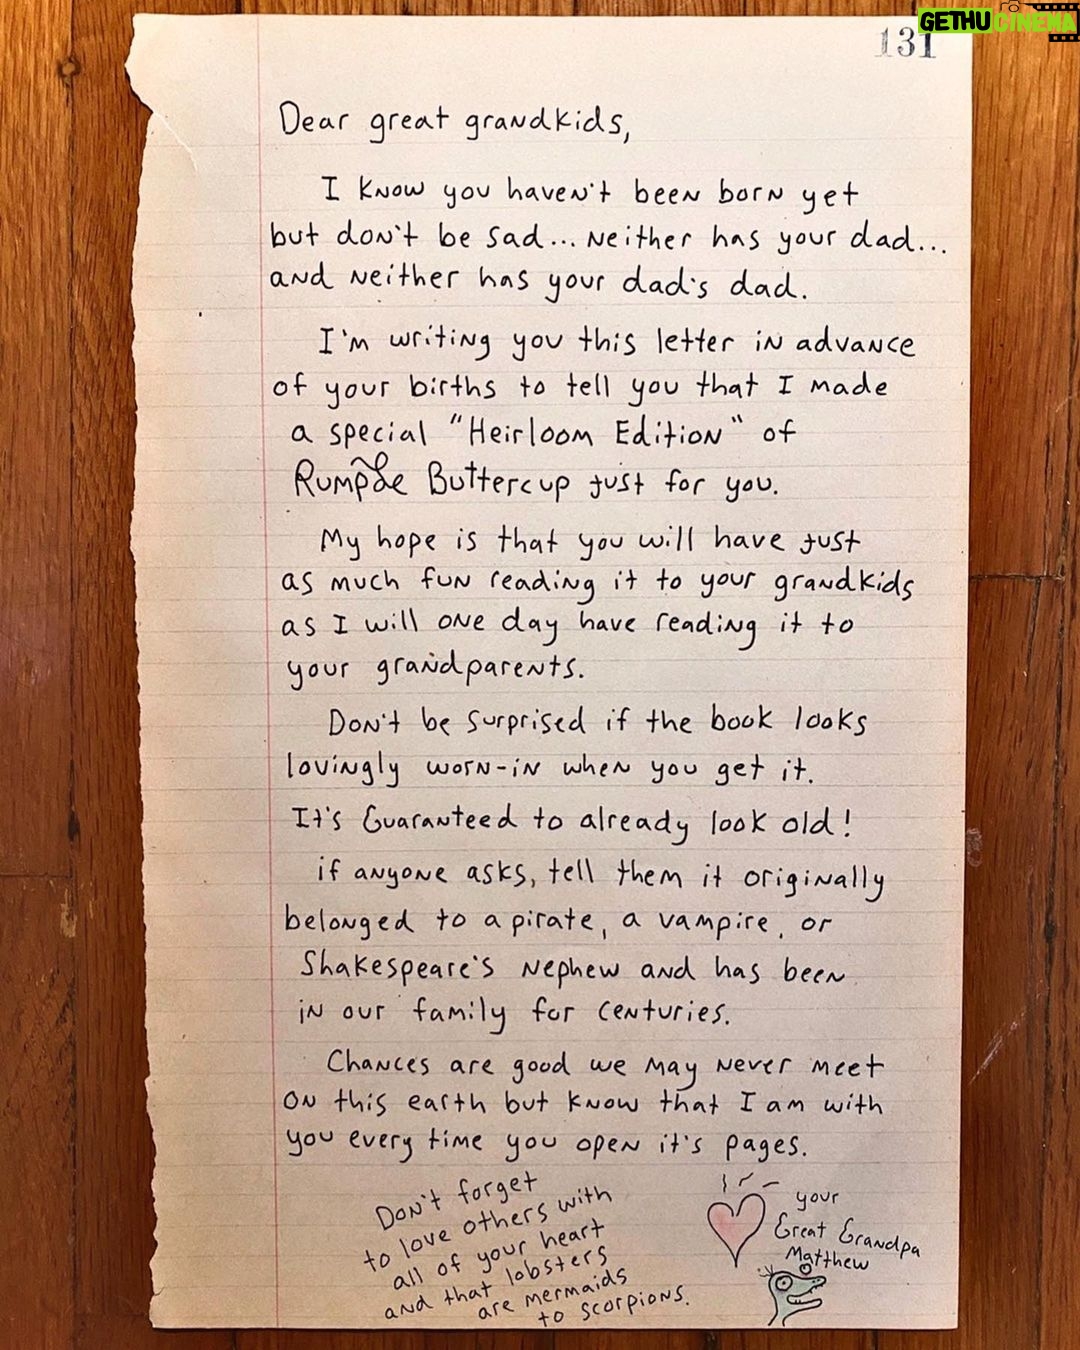 GETHUCINEMA
131
Dear great grandkids,
I know you haven't been born yet
but don't be sad... neither has your dad...
and neither has your dad's dad.
I'm writing you this letter in advance
of your births to tell you that I made
a special "Heirloom Edition" of
Rumple Buttercup just for you.
My hope is that you will have just
as much fun reading it to your grandkids
as I will one day have reading it to
your grandparents.
Don't be surprised if the book looks
lovingly worn-in when you get it.
It's Guaranteed to already look old!
if anyone asks, tell them it originally
belonged to a pirate, a vampire, or
Shakespeare's nephew and has been
in our family for centuries.
Chances are good we may never meet
on this earth but know that I am with
you every time you open it's pages.
Don't forget
to love others with
all of your heart
and that lobsters
are mermaids
to scorpions.
your
Great Grandpa
Matthew